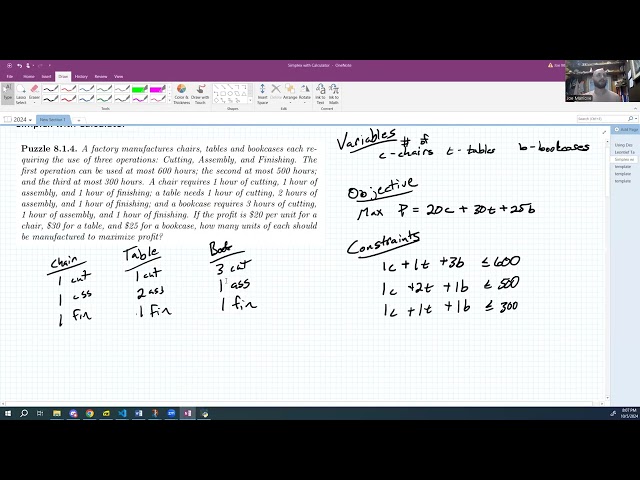 Simplex with Calculator - OneNote
Draw
Type
Lasso Select
Eraser
Tools
Shapes
Color & Thickness
Draw with Touch
Insert Space
Arrange
Rotate
Ink to Text
Ink to Math
2024
New Section 1
Joe Marricini
Add Page
template
template
template
Puzzle 8.1.4. A factory manufactures chairs, tables and bookcases each re-
quiring the use of three operations: Cutting, Assembly, and Finishing. The
first operation can be used at most 600 hours; the second at most 500 hours;
and the third at most 300 hours. A chair requires 1 hour of cutting, 1 hour of
assembly, and 1 hour of finishing; a table needs 1 hour of cutting, 2 hours of
assembly, and 1 hour of finishing; and a bookcase requires 3 hours of cutting,
1 hour of assembly, and 1 hour of finishing. If the profit is $20 per unit for a
chair, $30 for a table, and $25 for a bookcase, how many units of each should
be manufactured to maximize profit?
Chair Table Book
1 cut 1 cut 3 cut
1 ass 2 ass 1 ass
1 fin 1 fin 1 fin
Variables # of
c - chairs t - tables b - bookcases
Objective
Max P = 20c + 30t + 25b
Constraints
1c + 1t + 3b ≤ 600
1c + 2t + 1b ≤ 500
1c + 1t + 1b ≤ 300
8:07 PM
10/5/2024